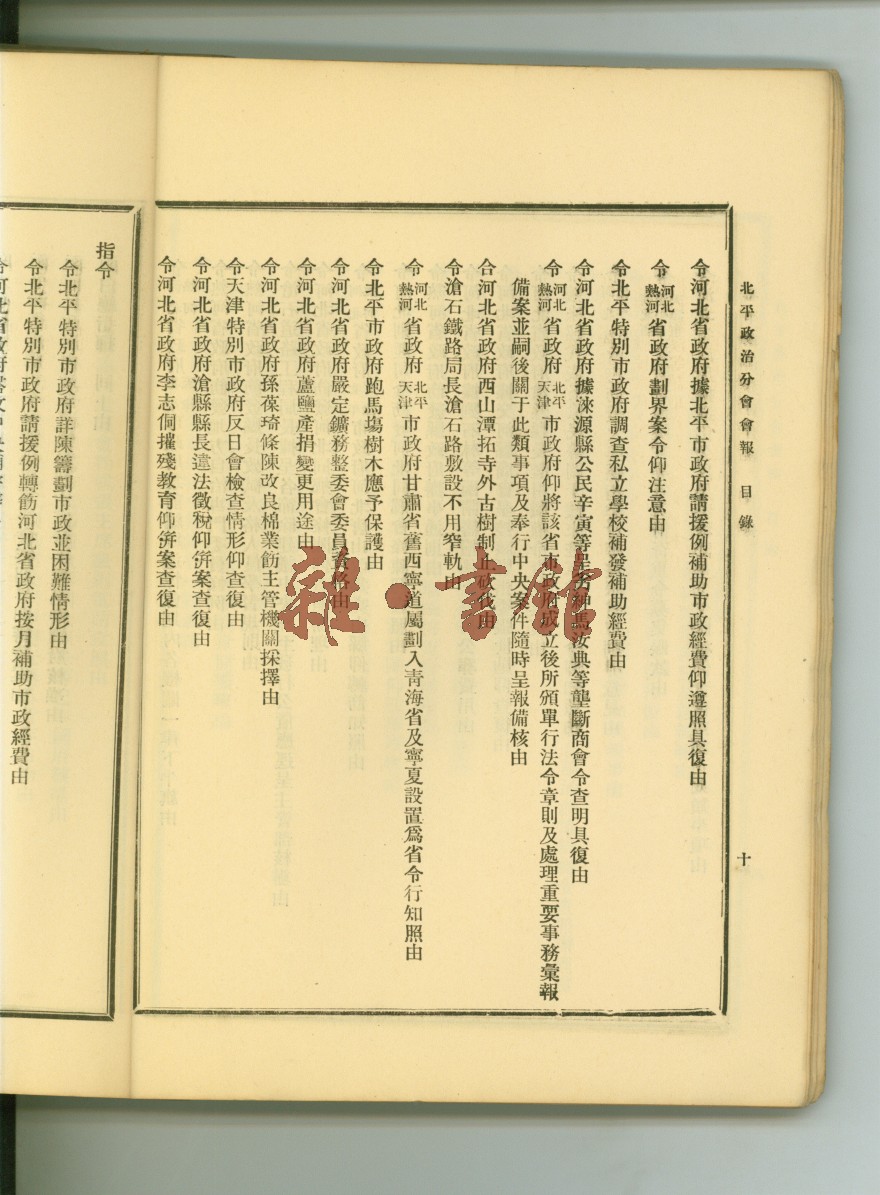 北平政治分會會報　目錄　十
令河北省政府據北平市政府請援例補助市政經費仰遵照具復由
令河北熱河省政府劃界案令仰注意由
令北平特別市政府調查私立學校補發補助經費由
令河北省政府據淶源縣公民辛寅等呈劣紳馬汝典等壟斷商會令查明具復由
令河北熱河省政府北平天津市政府仰將該省市政府成立後所頒單行法令章則及處理重要事務彙報
備案並嗣後關于此類事項及奉行中央案件隨時呈報備核由
合河北省政府西山潭拓寺外古樹制止砍伐由
令滄石鐵路局長滄石路敷設不用窄軌由
令河北熱河省政府北平天津市政府甘肅省舊西寧道屬劃入靑海省及寧夏設置爲省令行知照由
令北平市政府跑馬塲樹木應予保護由
令河北省政府嚴定鑛務整委會委員資格由
令河北省政府蘆鹽產捐變更用途由
令河北省政府孫葆琦條陳改良棉業飭主管機關採擇由
令天津特別市政府反日會檢查情形仰查復由
令河北省政府滄縣縣長違法徵稅仰併案查復由
令河北省政府李志侗摧殘敎育仰併案查復由
指令
令北平特別市政府詳陳籌劃市政並困難情形由
令北平特別市政府請援例轉飭河北省政府按月補助市政經費由
雜·書館